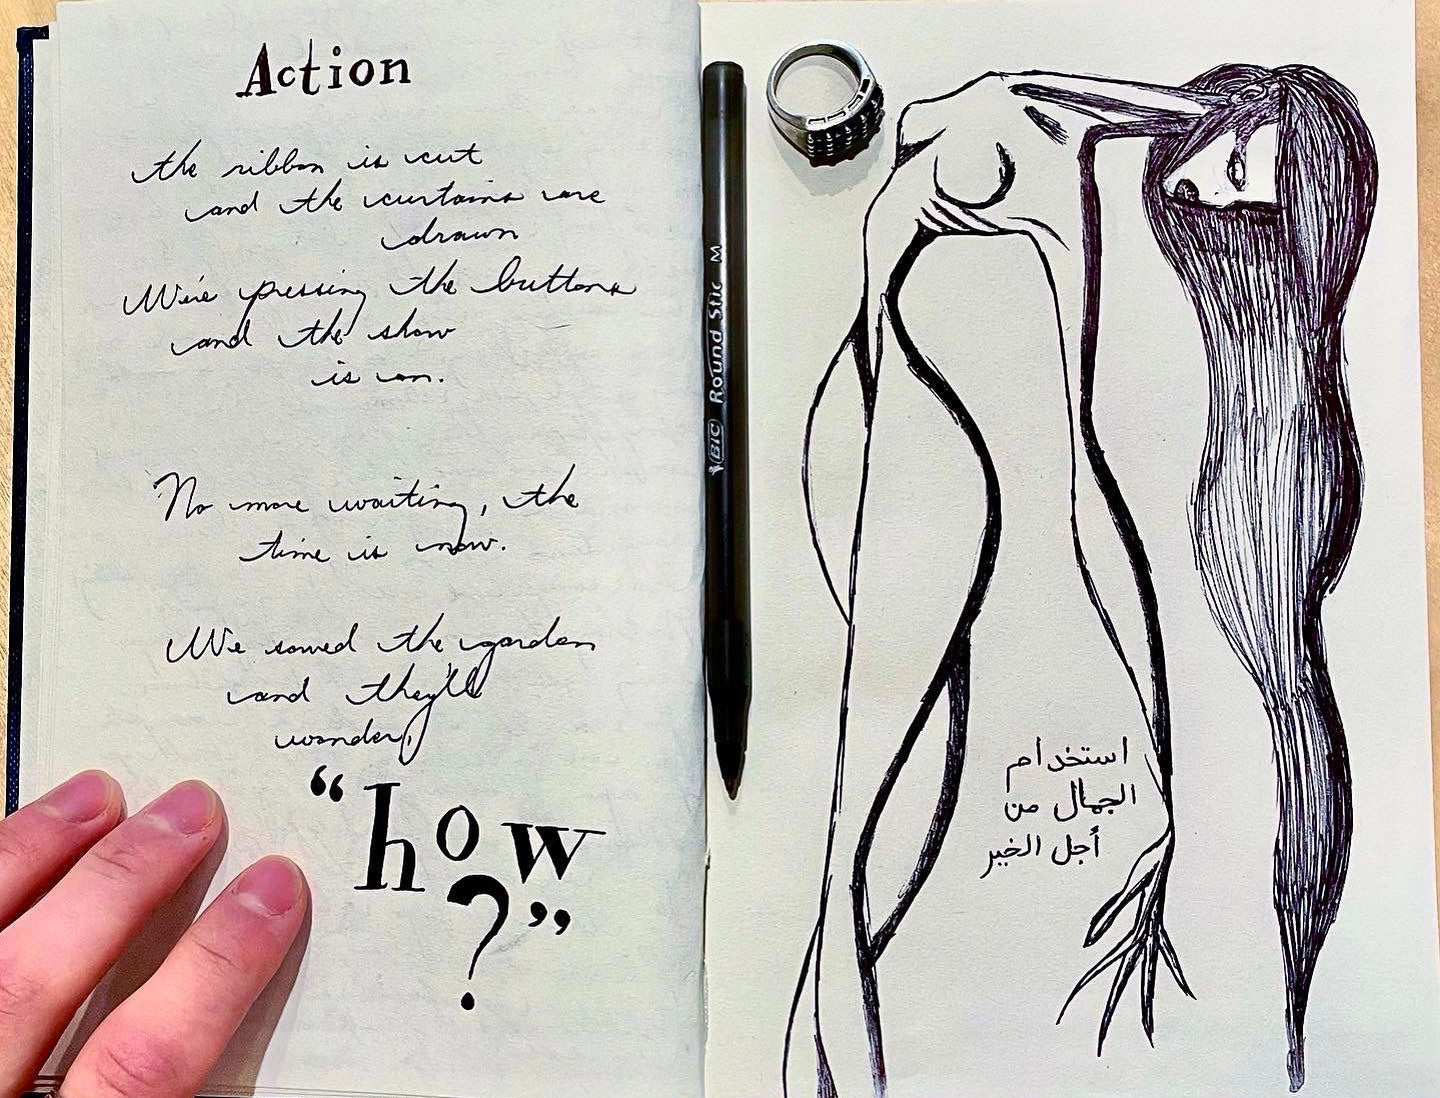 Action
the ribbon is cut
and the curtains are
drawn
We're pressing the buttons
and the show
is on.
No more waiting, the
time is now.
We sowed the garden
and they'll
wonder,
“how
?”
BIC Round Stic M
استخدام
الجمال من
أجل الخير